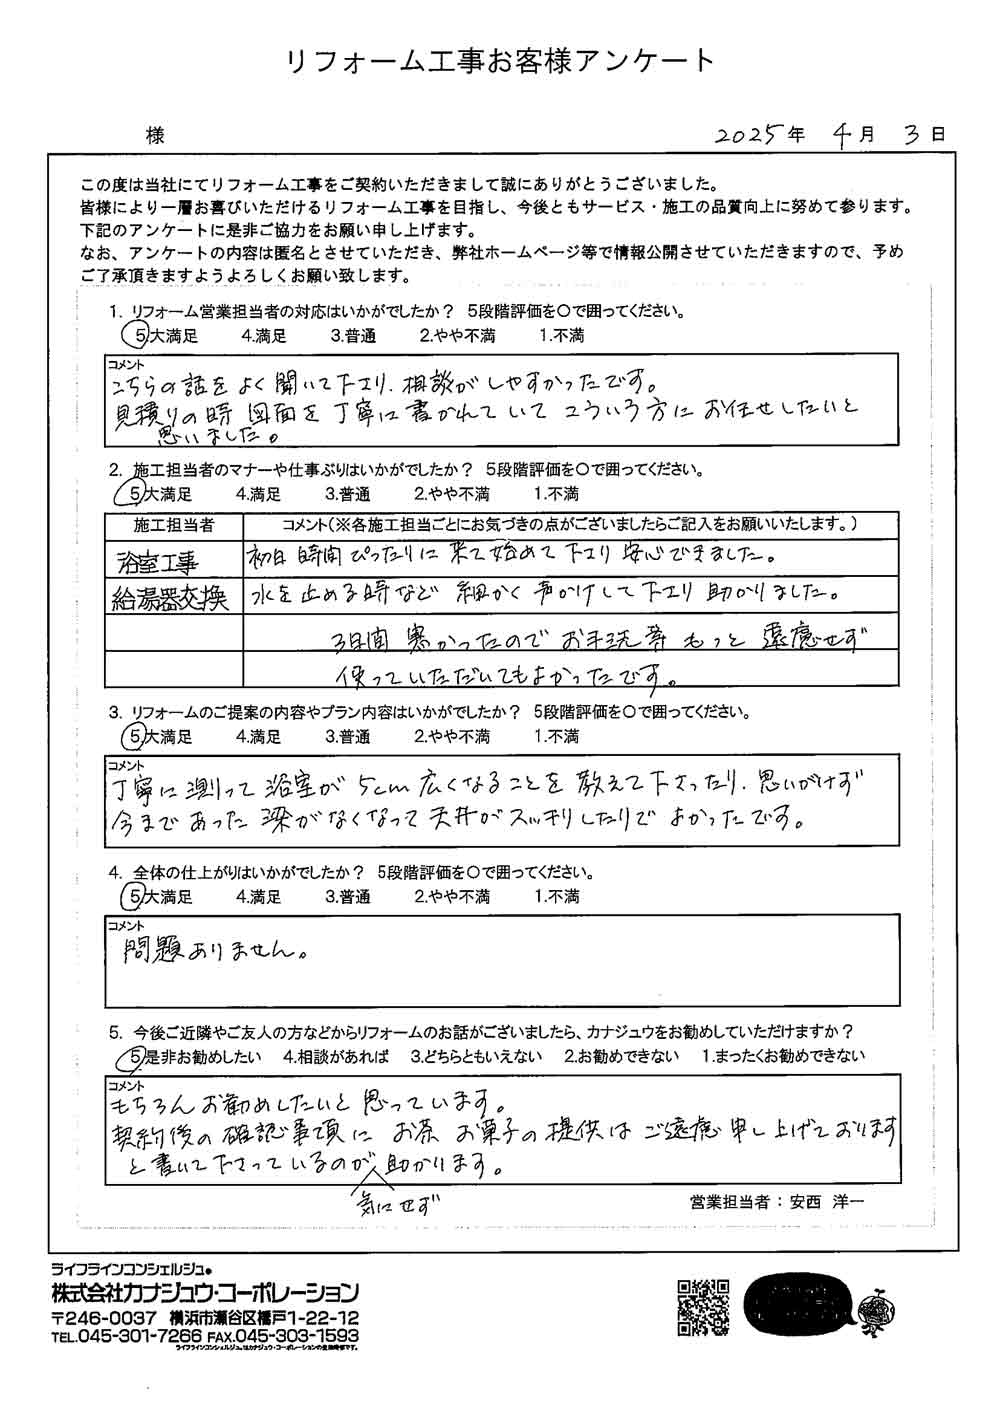 リフォーム工事お客様アンケート
様 2025年 4月 3日
この度は当社にてリフォーム工事をご契約いただきまして誠にありがとうございました。
皆様により一層お喜びいただけるリフォーム工事を目指し、今後ともサービス・施工の品質向上に努めて参ります。
下記のアンケートに是非ご協力をお願い申し上げます。
なお、アンケートの内容は匿名とさせていただき、弊社ホームページ等で情報公開させていただきますので、予め
ご了承頂きますようよろしくお願い致します。
1. リフォーム営業担当者の対応はいかがでしたか？ 5段階評価を○で囲ってください。
5.大満足 4.満足 3.普通 2.やや不満 1.不満
コメント
こちらの話をよく聞いて下さり、相談がしやすかったです。
見積りの時 図面を丁寧に書かれていて こういう方に お任せしたいと
思いました。
2. 施工担当者のマナーや仕事ぶりはいかがでしたか？ 5段階評価を○で囲ってください。
5.大満足 4.満足 3.普通 2.やや不満 1.不満
施工担当者 コメント(※各施工担当ごとにお気づきの点がございましたらご記入をお願いいたします。)
浴室工事 初日 時間ぴったりに 来て始めて下さり 安心できました。
給湯器交換 水を止める時など 細かく声かけして下さり 助かりました。
3日間 寒かったので お手洗等 もっと 遠慮せず
使っていただいてもよかったです。
3. リフォームのご提案の内容やプラン内容はいかがでしたか？ 5段階評価を○で囲ってください。
5.大満足 4.満足 3.普通 2.やや不満 1.不満
コメント
丁寧に測って 浴室が 5cm 広くなることを 教えて下さったり、思いがけず
今まであった 梁がなくなって 天井がスッキリしたりで よかったです。
4. 全体の仕上がりはいかがでしたか？ 5段階評価を○で囲ってください。
5.大満足 4.満足 3.普通 2.やや不満 1.不満
コメント
問題ありません。
5. 今後ご近隣やご友人の方などからリフォームのお話がございましたら、カナジュウをお勧めしていただけますか？
5.是非お勧めしたい 4.相談があれば 3.どちらともいえない 2.お勧めできない 1.まったくお勧めできない
コメント
もちろん お勧めしたいと 思っています。
契約後の 確認事項に お茶 お菓子の 提供は ご遠慮 申し上げております
と 書いて下さっているのが 助かります。
気にせず
営業担当者：安西 洋一
ライフラインコンシェルジュ®
株式会社カナジュウ・コーポレーション
〒246-0037 横浜市瀬谷区橋戸1-22-12
TEL.045-301-7266 FAX.045-303-1593
ライフラインコンシェルジュ®はカナジュウ・コーポレーションの登録商標です。